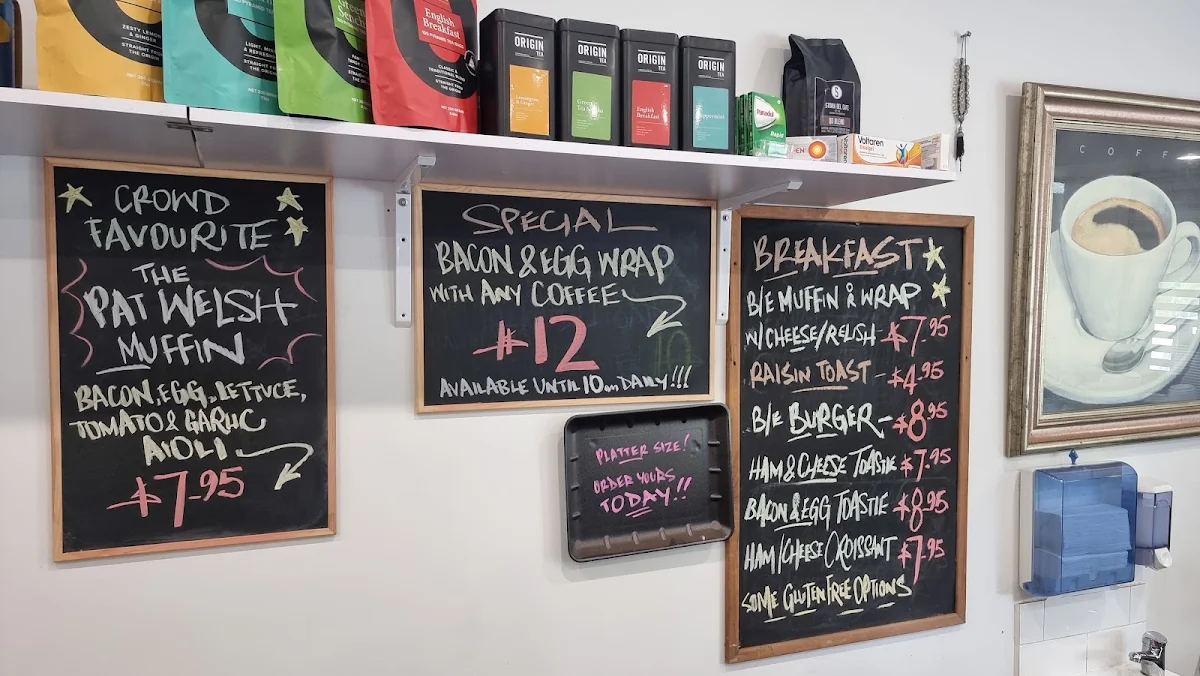 ZESTY LEMON
& GINGER
STRAIGHT FROM
THE ORIGIN
STRAIGHT FROM
THE ORIGIN
English
Breakfast
STRAIGHT FROM
THE ORIGIN
ORIGIN
TEA
Lemongrass
& Ginger
ORIGIN
TEA
ORIGIN
TEA
English
Breakfast
ORIGIN
TEA
Peppermint
Panadol
Rapid
Voltaren
Emulgel
CROWD
FAVOURITE
THE
PAT WELSH
MUFFIN
BACON, EGG, LETTUCE,
TOMATO & GARLIC
AIOLI
$7.95
SPECIAL
BACON & EGG WRAP
WITH ANY COFFEE
$12
AVAILABLE UNTIL 10am DAILY!!!
PLATTER SIZE!
ORDER YOURS
TODAY!!
BREAKFAST
B/E MUFFIN & WRAP
W/CHEESE/RELISH $7.95
RAISIN TOAST - $4.95
B/E BURGER - $8.95
HAM & CHEESE TOASTIE $7.95
BACON & EGG TOASTIE $8.95
HAM/CHEESE CROISSANT $7.95
SOME GLUTEN FREE OPTIONS
COFF